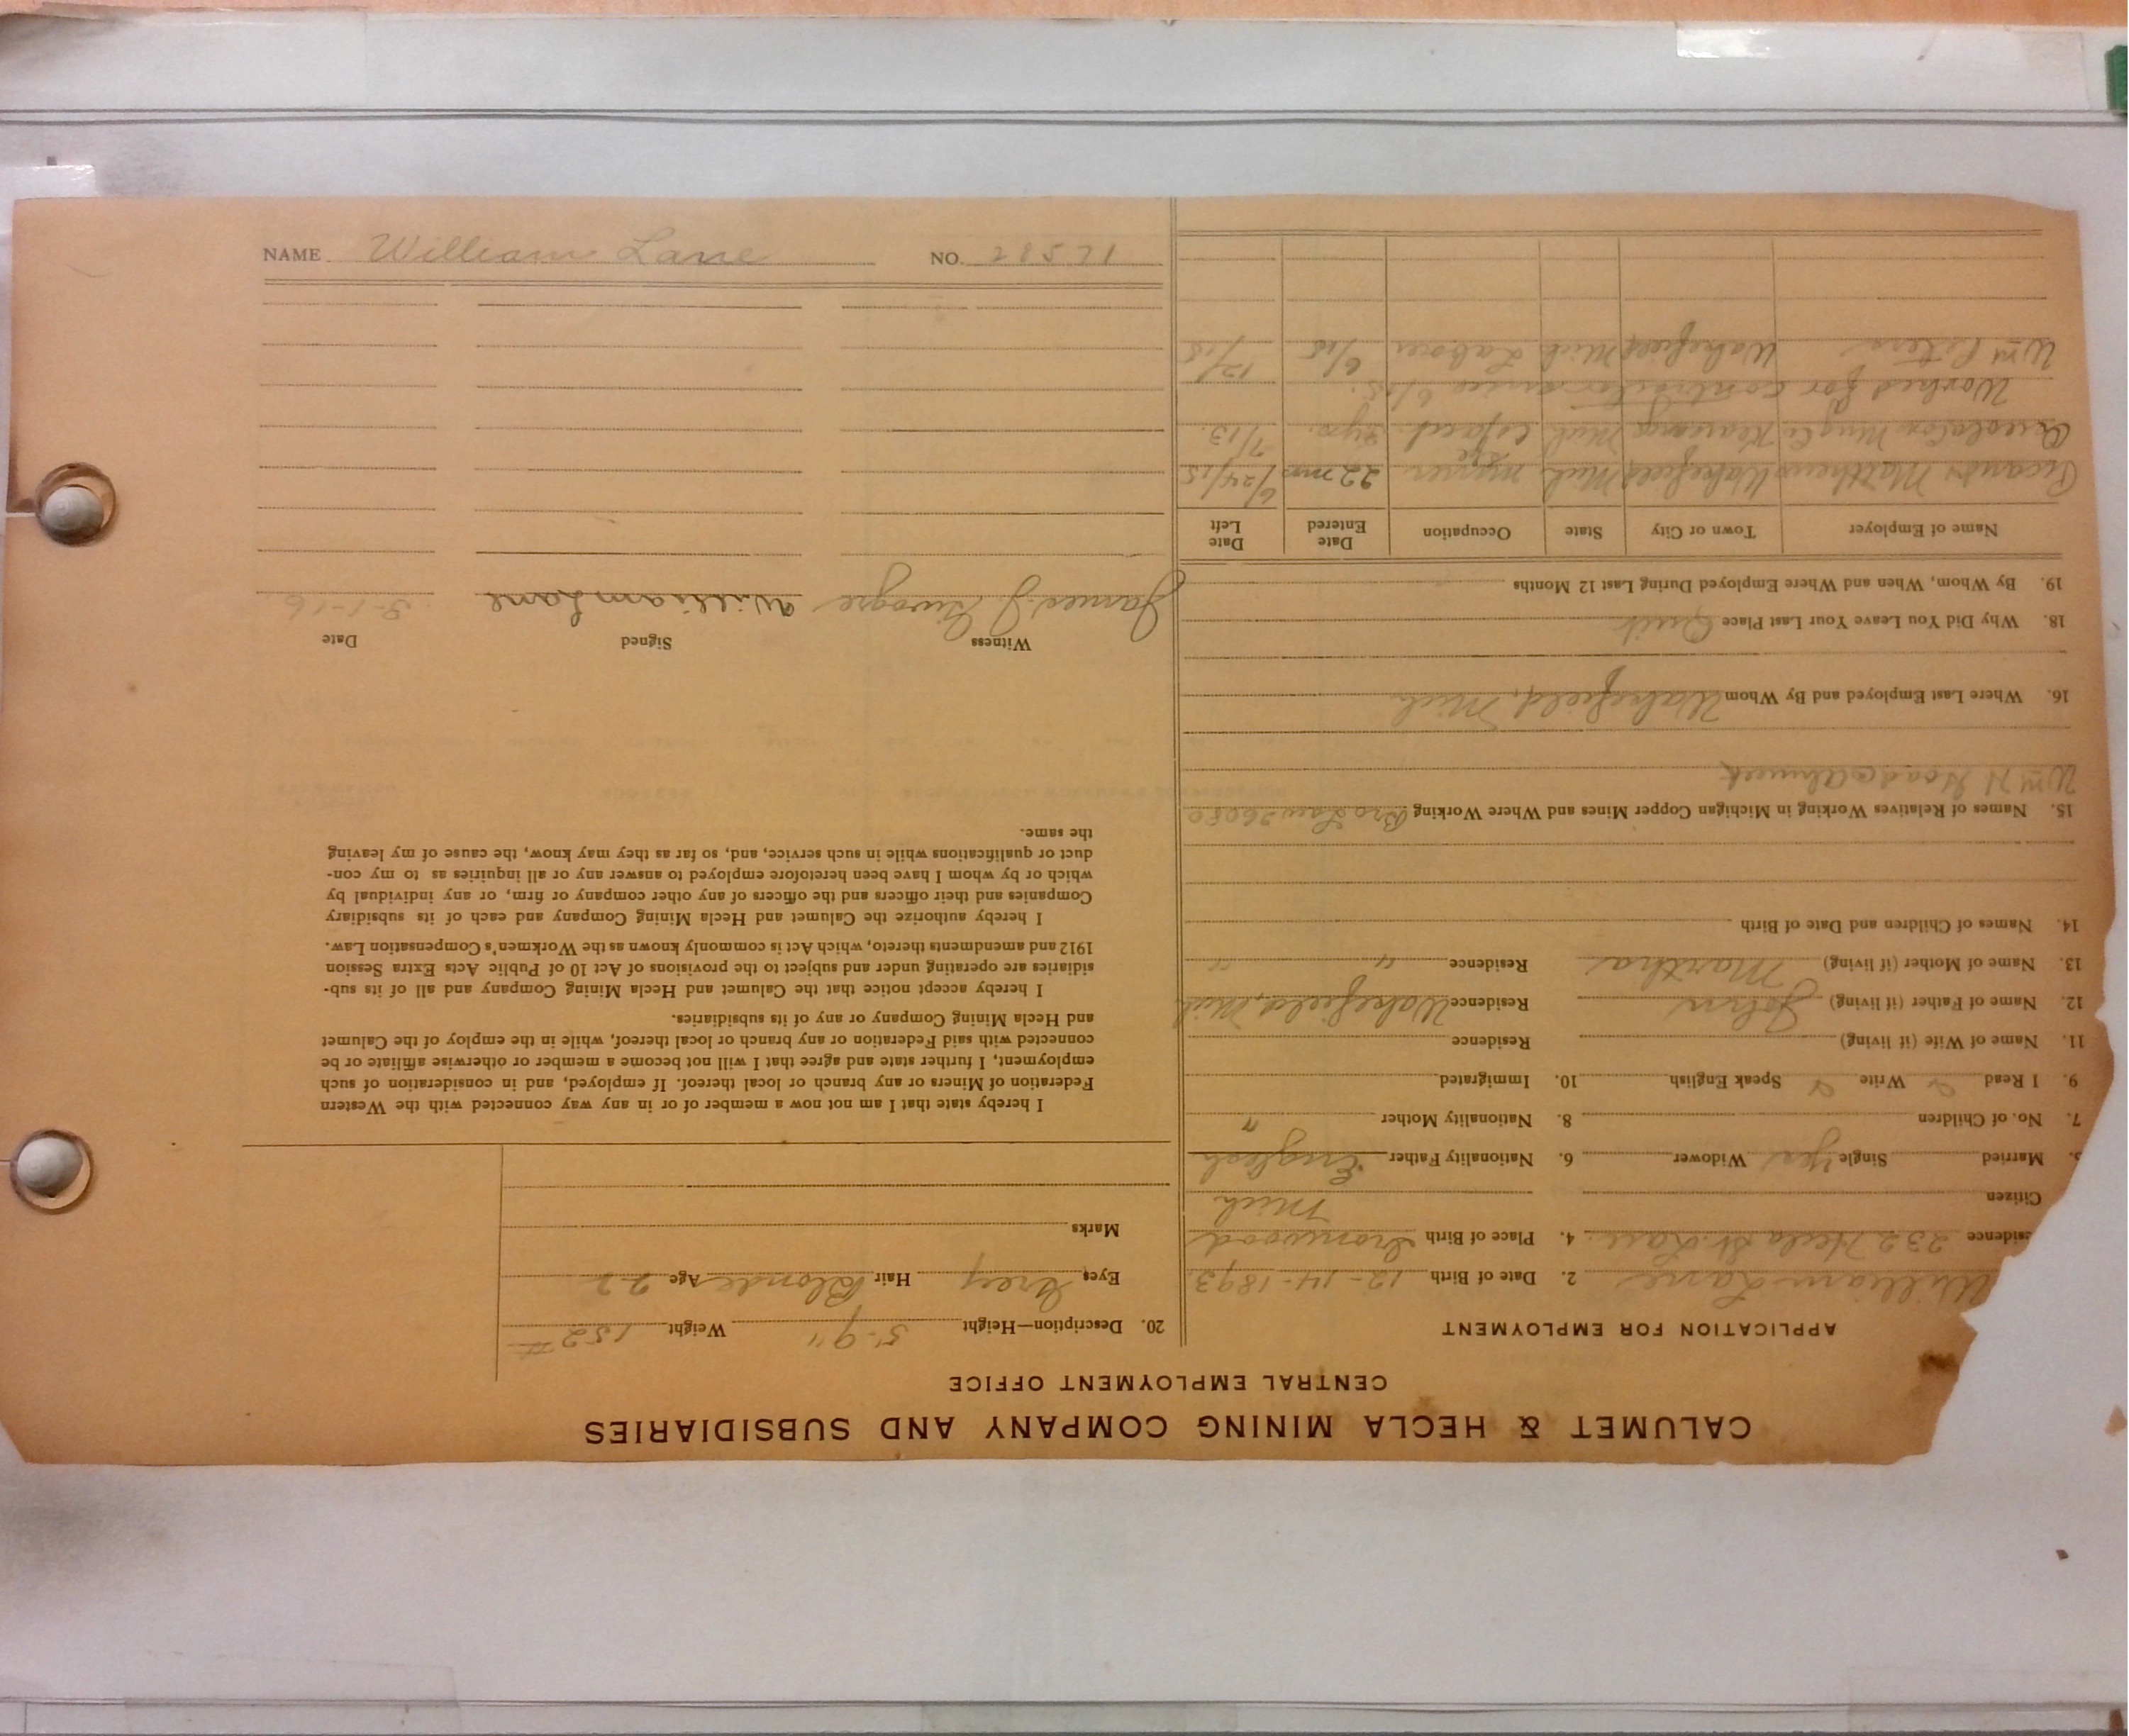 CALUMET & HECLA MINING COMPANY AND SUBSIDIARIES
CENTRAL EMPLOYMENT OFFICE
APPLICATION FOR EMPLOYMENT
William Lane 2. Date of Birth 12-14-1893.
sidence 232 Hecla St. Laur. 4. Place of Birth Ironwood
Citizen Mich
Married Single Yes Widower 6. Nationality Father English
7. No. of Children 8. Nationality Mother "
9. I Read Write Speak English 10. Immigrated
11. Name of Wife (if living) Residence
12. Name of Father (if living) John Residence Wakefield, Mich
13. Name of Mother (if living) Martha Residence " "
14. Names of Children and Date of Birth
15. Names of Relatives Working in Michigan Copper Mines and Where Working Bro Law 26080
Wm H Hoad
16. Where Last Employed and By Whom Wakefield, Mich
18. Why Did You Leave Your Last Place Quit
19. By Whom, When and Where Employed During Last 12 Months
Name of Employer Town or City State Occupation Date Entered Date Left
Pickands Matthews Wakefield Mich Miner 22 mos 6/24/15
Mich 7/13.
Worked for contractor since 6/15.
Wm Peters Wakefield Mich Laborer 6/15 12/15
20. Description—Height 5-9" Weight 152#
Eyes Grey Hair Blonde Age 22
Marks
I hereby state that I am not now a member of or in any way connected with the Western
Federation of Miners or any branch or local thereof. If employed, and in consideration of such
employment, I further state and agree that I will not become a member or otherwise affiliate or be
connected with said Federation or any branch or local thereof, while in the employ of the Calumet
and Hecla Mining Company or any of its subsidiaries.
I hereby accept notice that the Calumet and Hecla Mining Company and all of its sub-
sidiaries are operating under and subject to the provisions of Act 10 of Public Acts Extra Session
1912 and amendments thereto, which Act is commonly known as the Workmen's Compensation Law.
I hereby authorize the Calumet and Hecla Mining Company and each of its subsidiary
Companies and their officers and the officers of any other company or firm, or any individual by
which or by whom I have been heretofore employed to answer any or all inquiries as to my con-
duct or qualifications while in such service, and, so far as they may know, the cause of my leaving
the same.
Witness Signed Date
James J William Lane 3-1-16
NAME William Lane NO. 28571